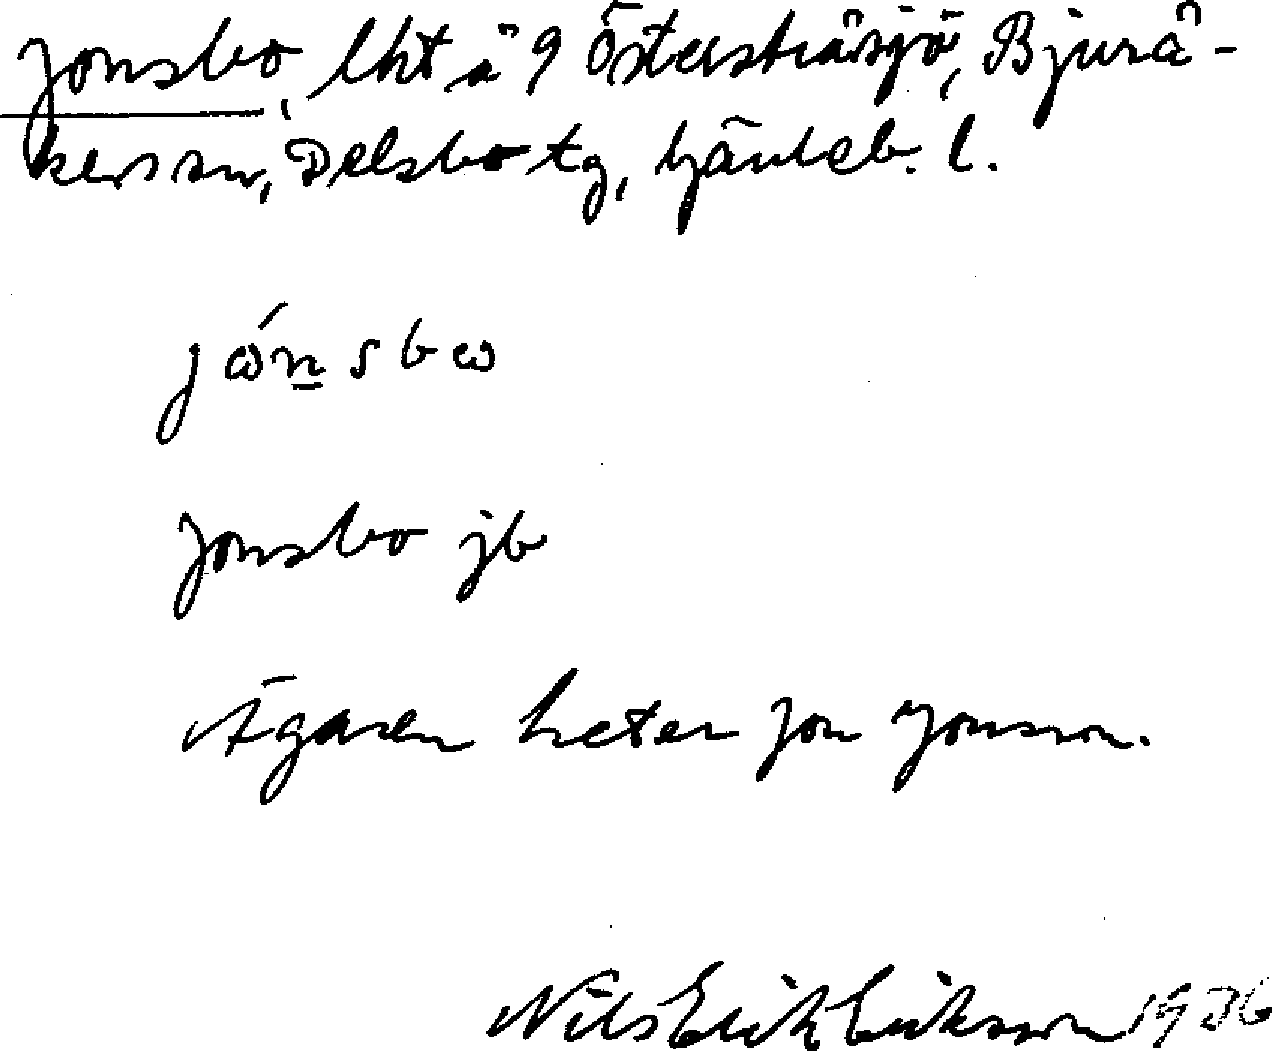 Jonsbo, lht å 9 Östersträsjö, Bjurå-
kers sn, Delsbo tg, Gävleb. l.
jώn̲sbω
Jonsbo jb
Ägaren heter Jon Jonsson.
Nils Erik Eriksson 1936